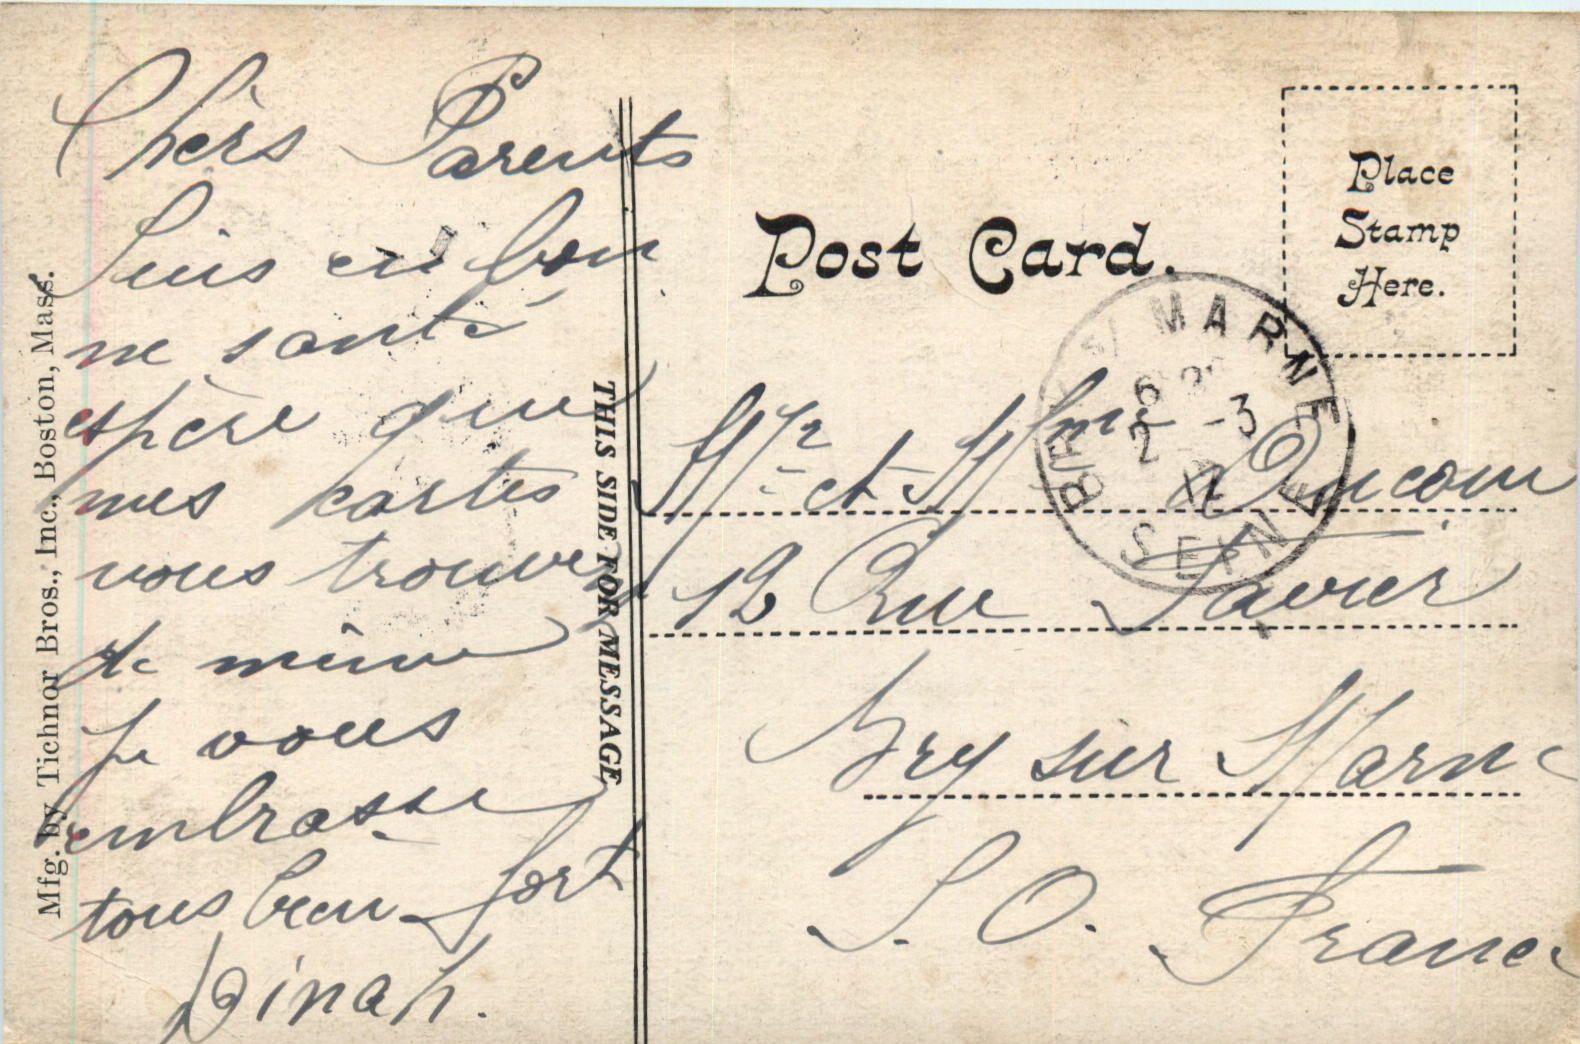 Chèrs Parents
Suis en bon
ne santé
espère que
mes cartes
vous trouves
de même
je vous
embrasse
tous bien fort
Dinah.
Mfg. by Tichnor Bros., Inc., Boston, Mass.
THIS SIDE FOR MESSAGE
Post Card.
Place
Stamp
Here.
BRY S/ MARNE
6
2 -3
SEINE
Mr et Mme Ducom
12 Rue Favier
Bry sur Marne
S. O. France